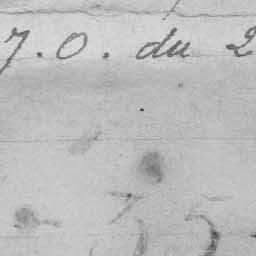 7.0. du 2
35